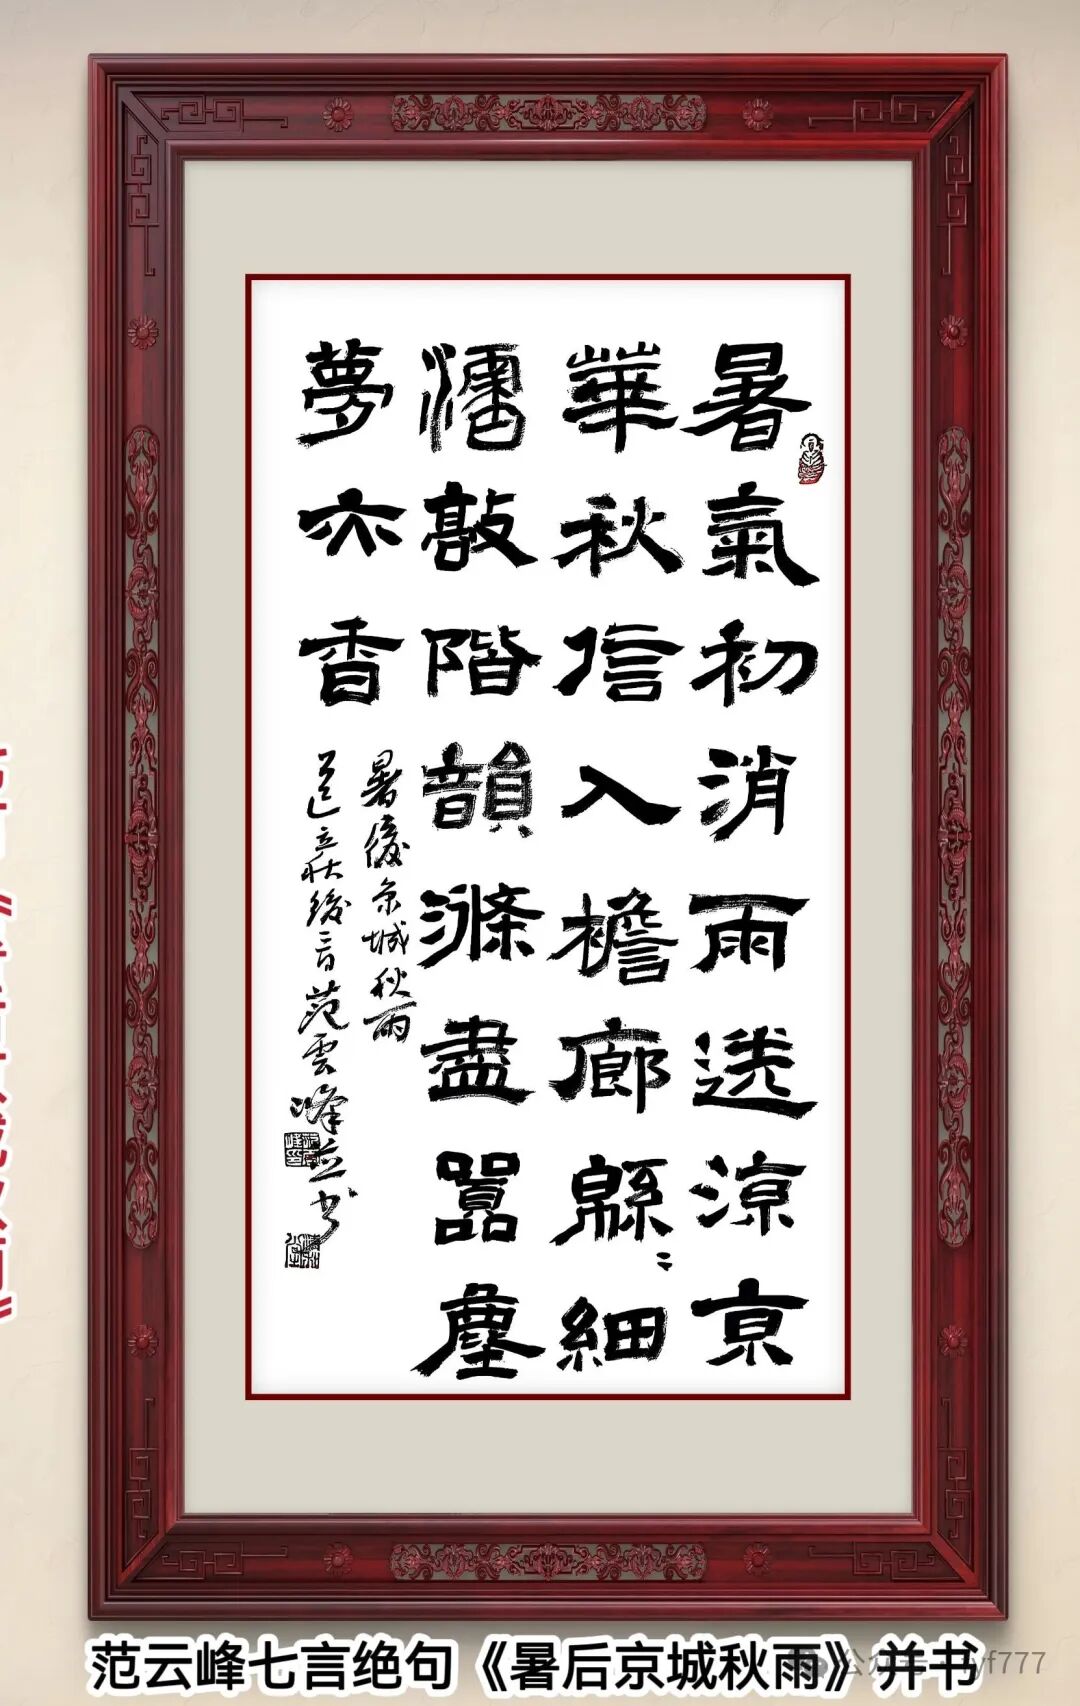 暑氣初消雨送涼京
華秋信入檐廊緜〻細
敲階韻滌盡囂塵
夢亦香
暑後京城秋雨
立秋後三日范雲峰並書
范云峰七言绝句《暑后京城秋雨》并书
公众号